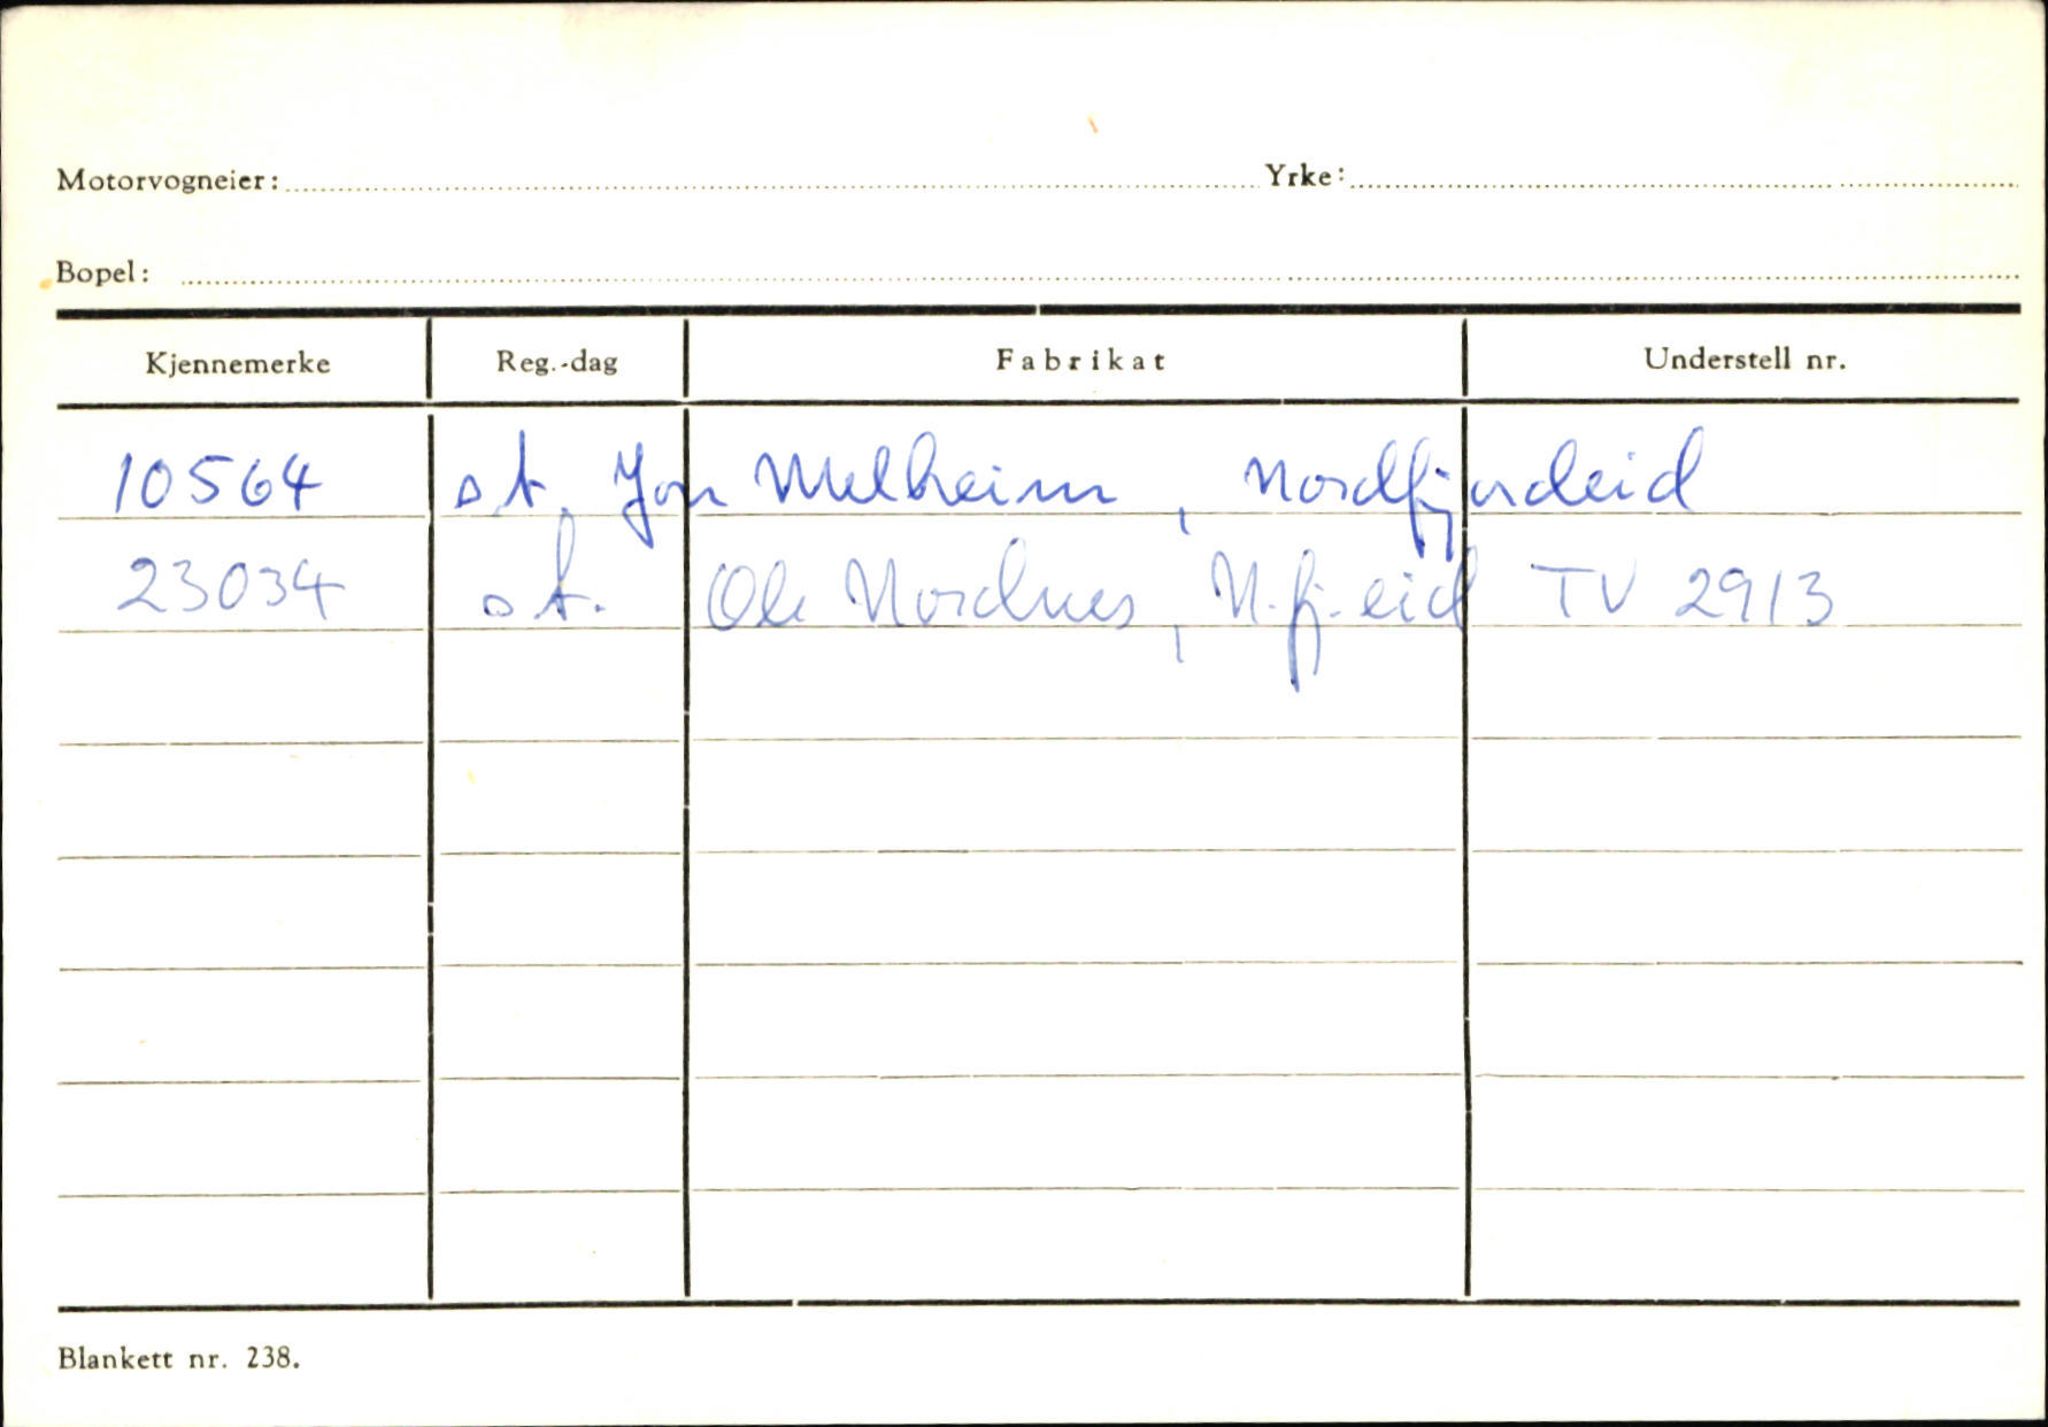 Motorvogneier: Yrke:
Bopel:
Kjennemerke Reg.-dag Fabrikat Understell nr.
10564 st. Jon Melheim, Nordfjordeid
23034 st. Ole Nordnes, N.fj.eid TV 2913
Blankett nr. 238.